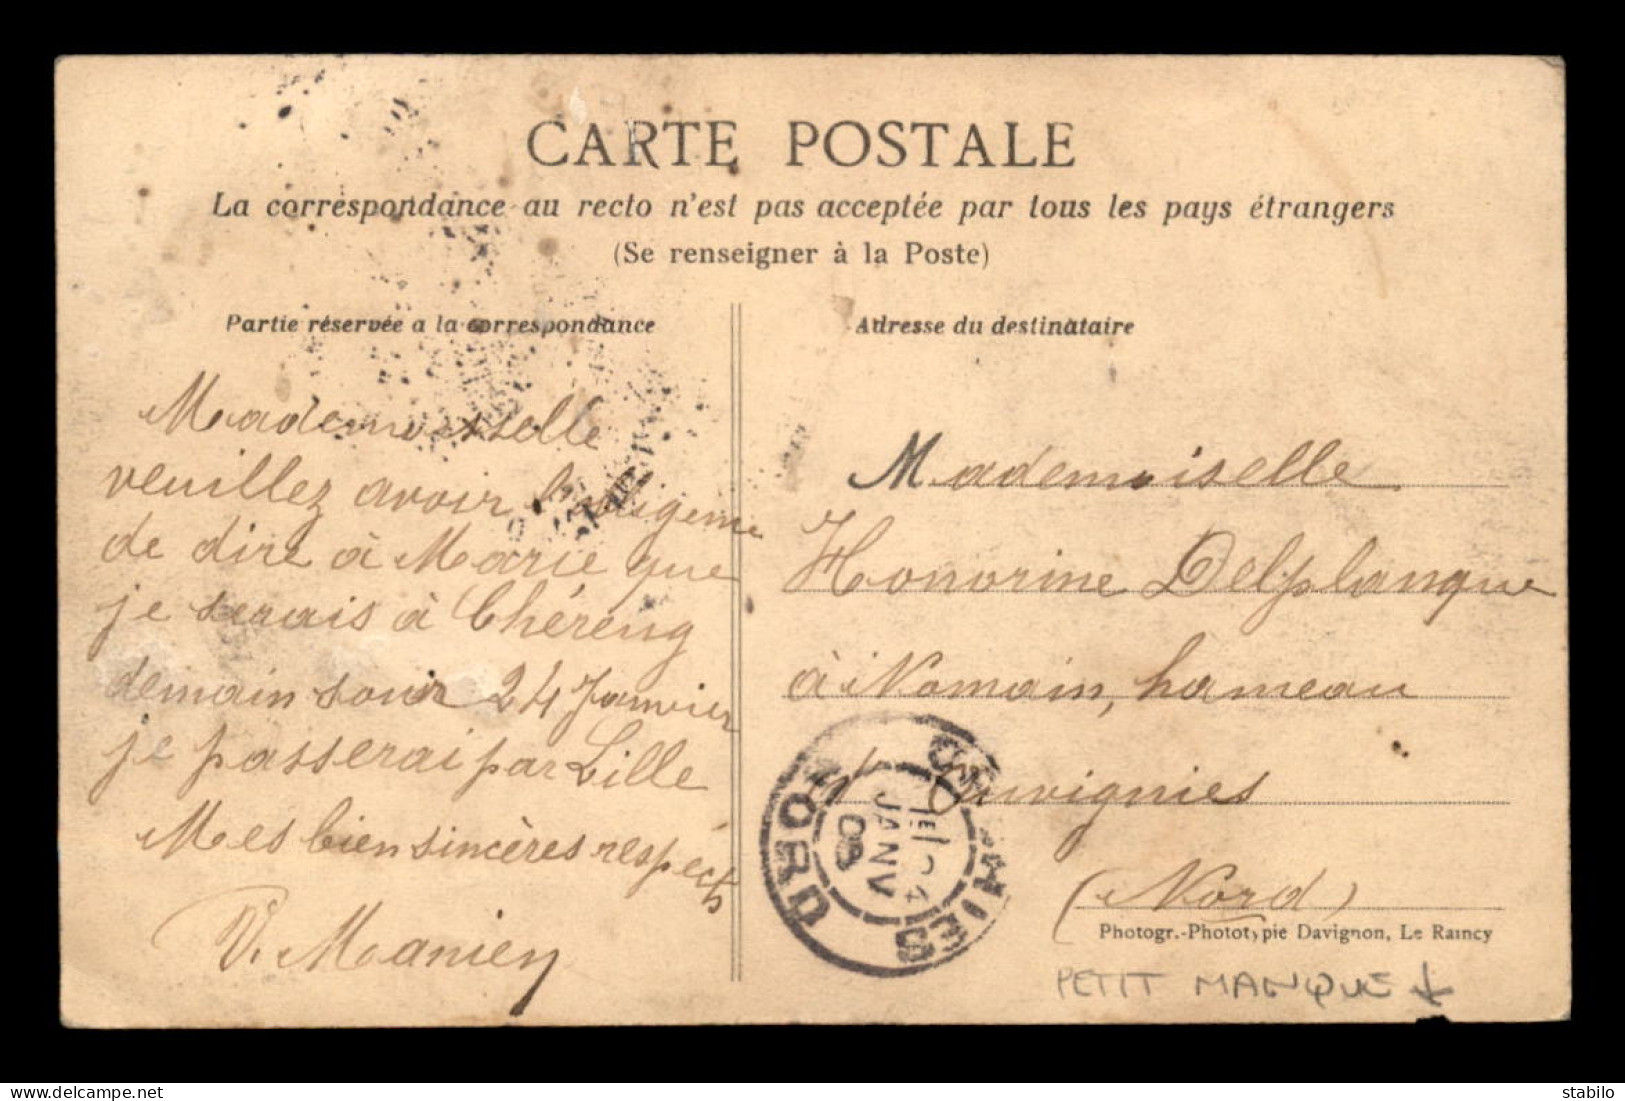 CARTE POSTALE
La correspondance au recto n'est pas acceptée par tous les pays étrangers
(Se renseigner à la Poste)
Partie réservée a la correspondance
Mademoiselle
veuillez avoir
de dire à Marie que
je serais à Chéreng
demain soir 24 Janvier
je passerai par Lille
Mes bien sincères respects
V. Manien
Adresse du destinataire
Mademoiselle
Honorine Delplanque
à Nomain, hameau
Ouvignies
(Nord)
NORD
JANV
08
Photogr.-Phototypie Davignon, Le Raincy
PETIT MANQUE ↓
delcampe.net
stabilo